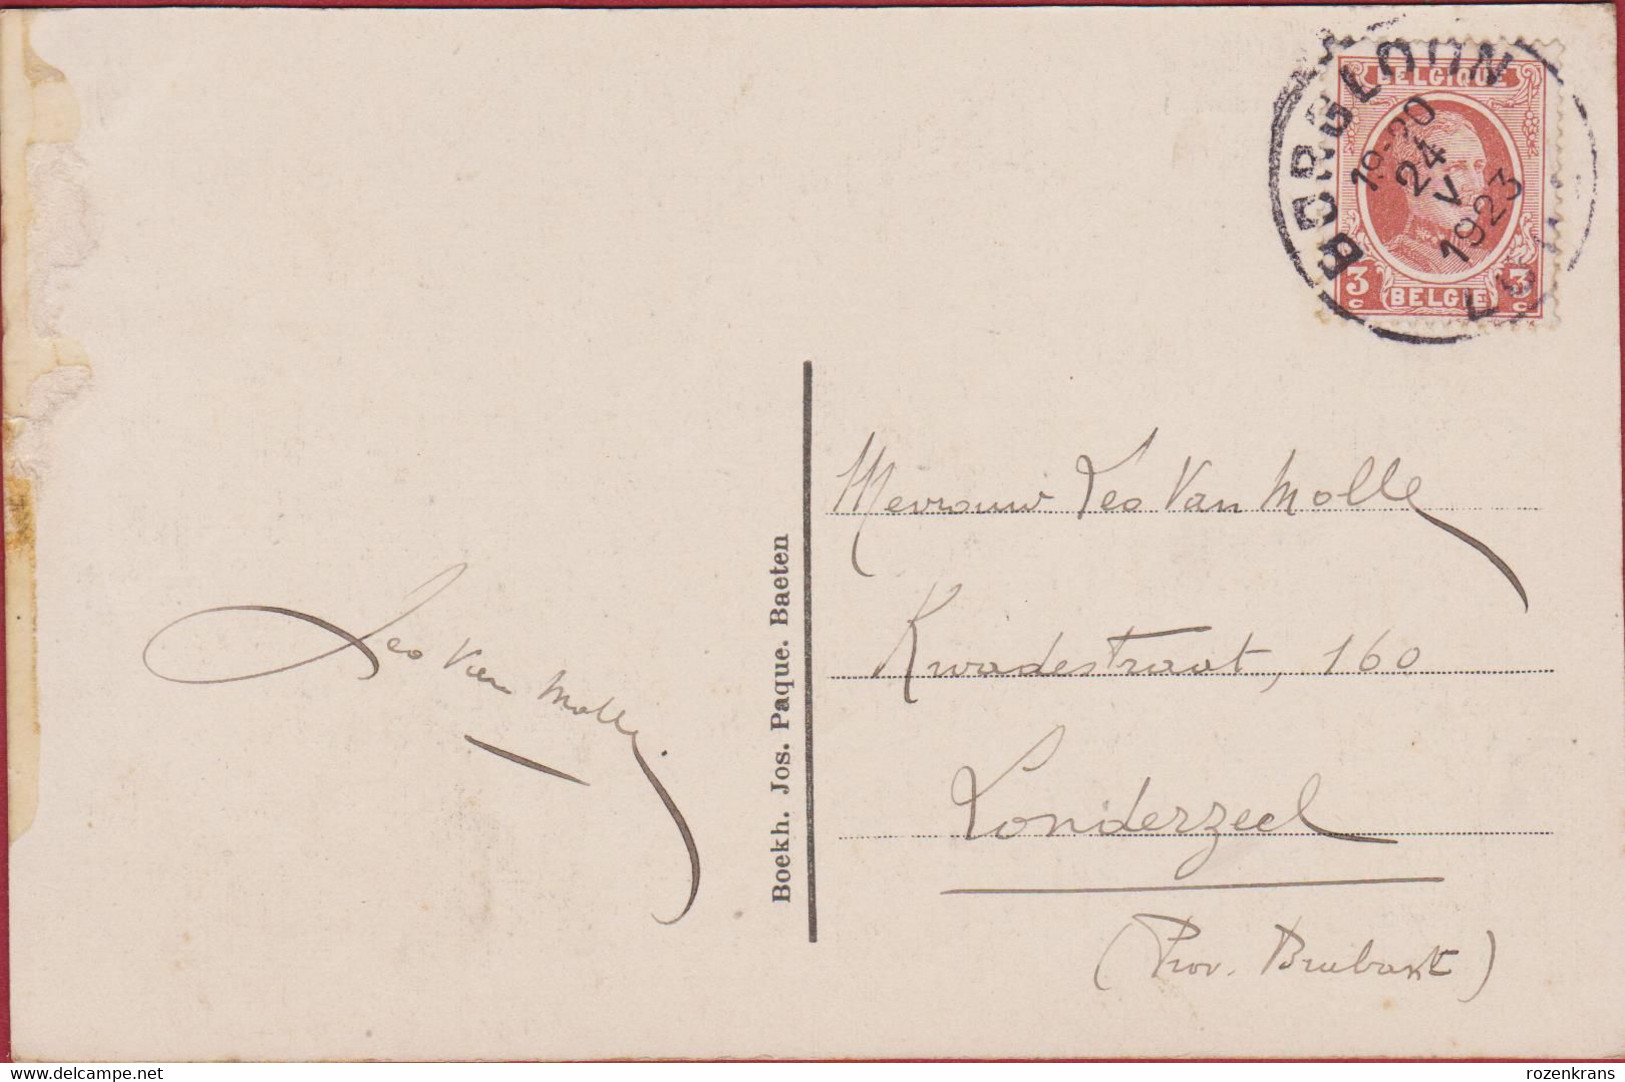 BORGLOON
BELGIQUE
19-20
24
V
1923
3c BELGIE 3c
Mevrouw Leo Van Molle
Kwadestraat, 160
Londerzeel
(Prov. Brabant)
Leo Van Molle
Boekh. Jos. Paque. Baeten
www.delcampe.net
rozenkrans